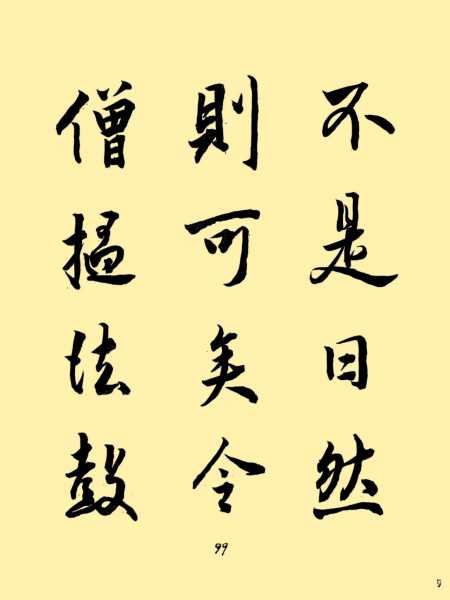 不是曰然
則可矣令
僧撾法鼓
99